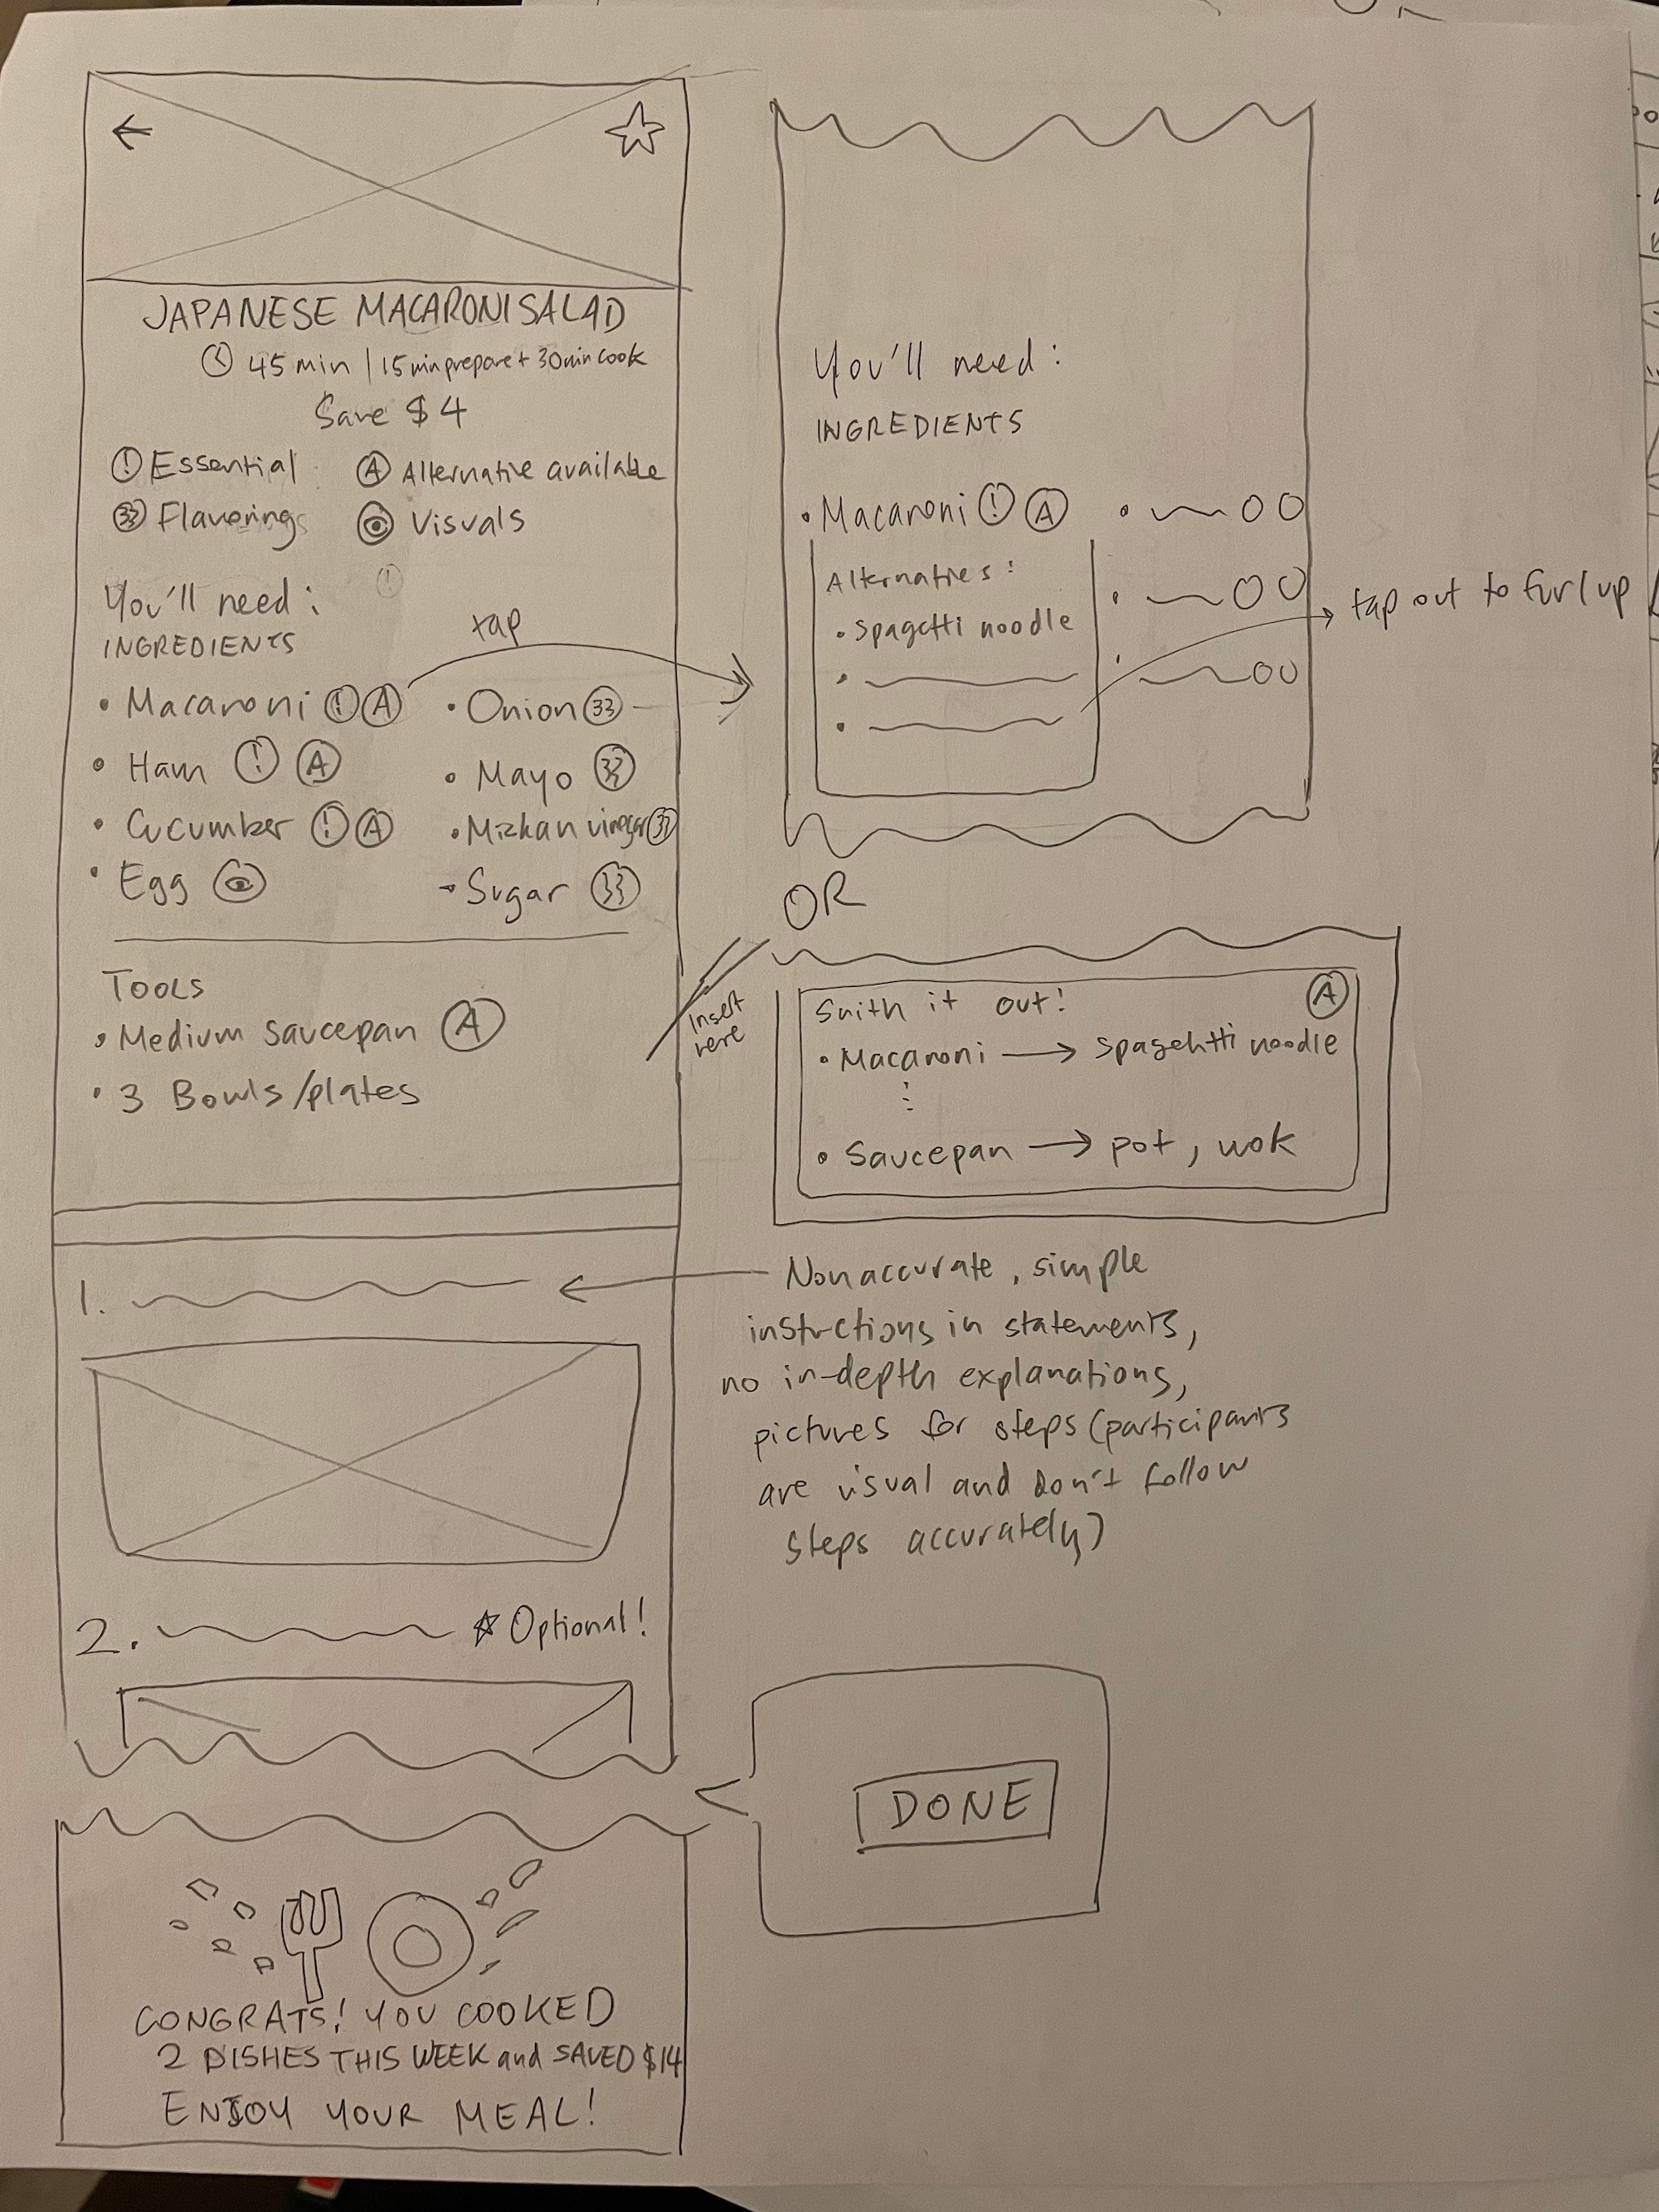 JAPANESE MACARONI SALAD
45 min | 15 min prepare + 30min cook
Save $4
! Essential
A Alternative available
Flavorings
Visuals
You'll need:
INGREDIENTS
• Macaroni ! A
• Onion
• Ham ! A
• Mayo
• Cucumber ! A
• Mizkan vinegar
• Egg
• Sugar
TOOLS
• Medium saucepan A
• 3 Bowls/plates
1.
2.
☆ Optional!
CONGRATS! YOU COOKED
2 DISHES THIS WEEK and SAVED $14
ENJOY YOUR MEAL!
tap
You'll need:
INGREDIENTS
• Macaroni ! A
Alternaties:
• spagetti noodle
tap out to furl up
OR
Insert
here
Swith it out! A
• Macaroni → spagehtti noodle
• Saucepan → pot, wok
Non accurate, simple
instructions in statements,
no in-depth explanations,
pictures for steps (participants
are visual and don't follow
steps accurately)
DONE